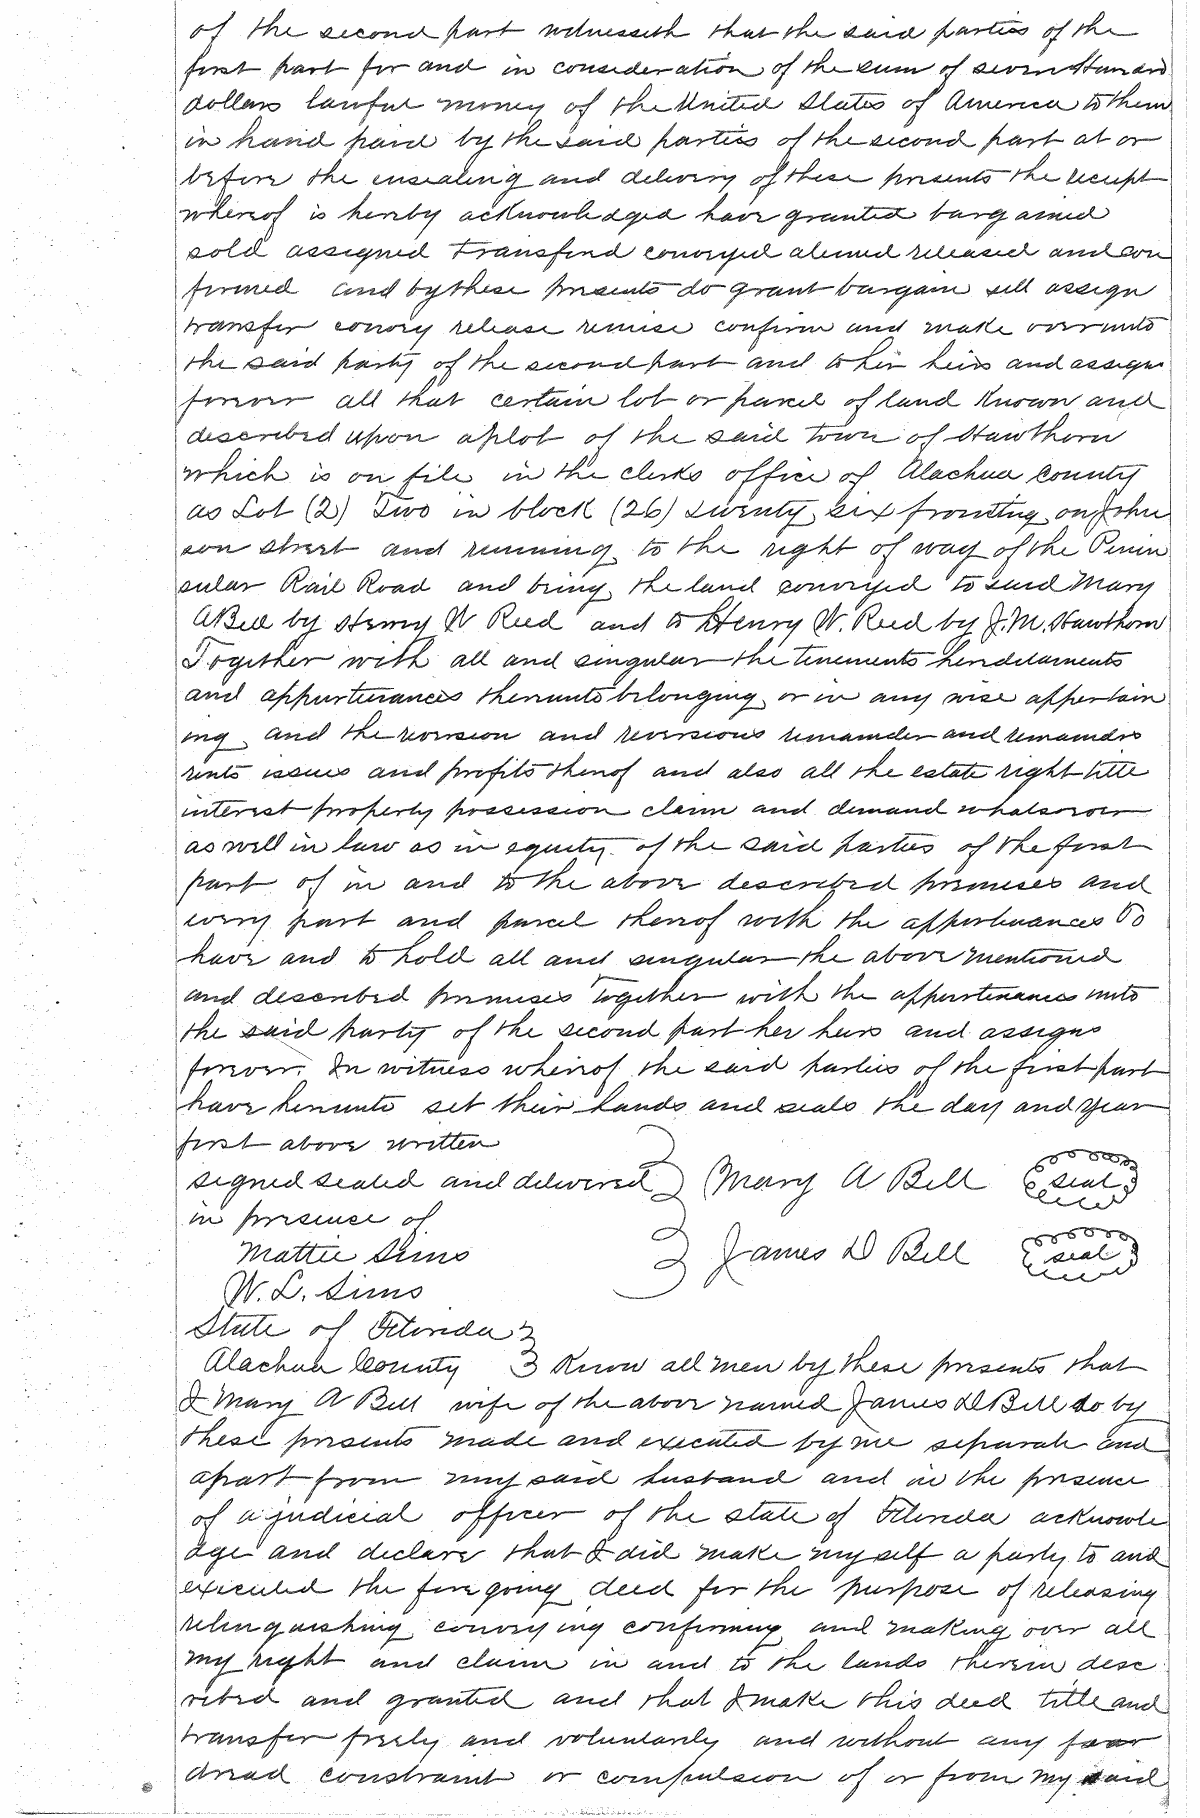 of the second part witnesseth that the said parties of the
first part for and in consideration of the sum of seven Hundred
dollars lawful money of the United States of America to them
in hand paid by the said parties of the second part at or
before the ensealing and delivery of these presents the receipt
whereof is hereby acknowledged have granted bargained
sold assigned transferred conveyed aliened released and con
firmed and by these presents do grant bargain sell assign
transfer convey release remise confirm and make over unto
the said party of the second part and to her heirs and assigns
forever all that certain lot or parcel of land known and
described upon a plot of the said town of Hawthorn
which is on file in the clerks office of Alachua county
as Lot (2) Two in block (26) twenty six fronting on John
son street and running to the right of way of the Penin
sular Rail Road and being the land conveyed to said Mary
A Bell by Henry W Reed and to Henry W. Reed by J. M. Hawthorn
Together with all and singular the tenements hereditaments
and appurtenances thereunto belonging or in any wise appertain
ing and the reversion and reversions remainder and remainders
rents issues and profits thereof and also all the estate right title
interest property possession claim and demand whatsoever
as well in law as in equity of the said parties of the first
part of in and to the above described premises and
every part and parcel thereof with the appurtenances To
have and to hold all and singular the above mentioned
and described premises together with the appurtenances unto
the said party of the second part her heirs and assigns
forever. In witness whereof the said parties of the first part
have hereunto set their hands and seals the day and year
first above written
signed sealed and delivered Mary A Bell seal
in presence of
Mattie Sims James D Bell seal
W. L. Sims
State of Florida
Alachua County Know all men by these presents that
I Mary A Bell wife of the above named James D Bell do by
these presents made and executed by me separate and
apart from my said husband and in the presence
of a judicial officer of the state of Florida acknowle
dge and declare that I did make myself a party to and
executed the foregoing deed for the purpose of releasing
relinquishing conveying confirming and making over all
my right and claim in and to the lands therein desc
ribed and granted and that I make this deed title and
transfer freely and voluntarily and without any fear
dread constraint or compulsion of or from my said